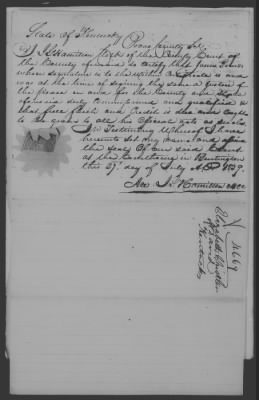 State of Kentucky Boone County Sct
I J. Hamilton Clerk of the County Court of
the County aforesaid certify that James
whose signature is to the within Certificate is and
was at the time of signing the same a Justice of
the peace in and for the County and State
aforesaid duly Commissioned and qualified &
that full faith and Credit is due and ought
to be given to all his Official acts as such
In Testimony Whereof I have
hereunto Set my hand and affixed
the Seal of our said Court
at the Courthouse in Burlington
this 27th day of July A.D. 1839.
J. Hamilton
Elizabeth
Kentucky